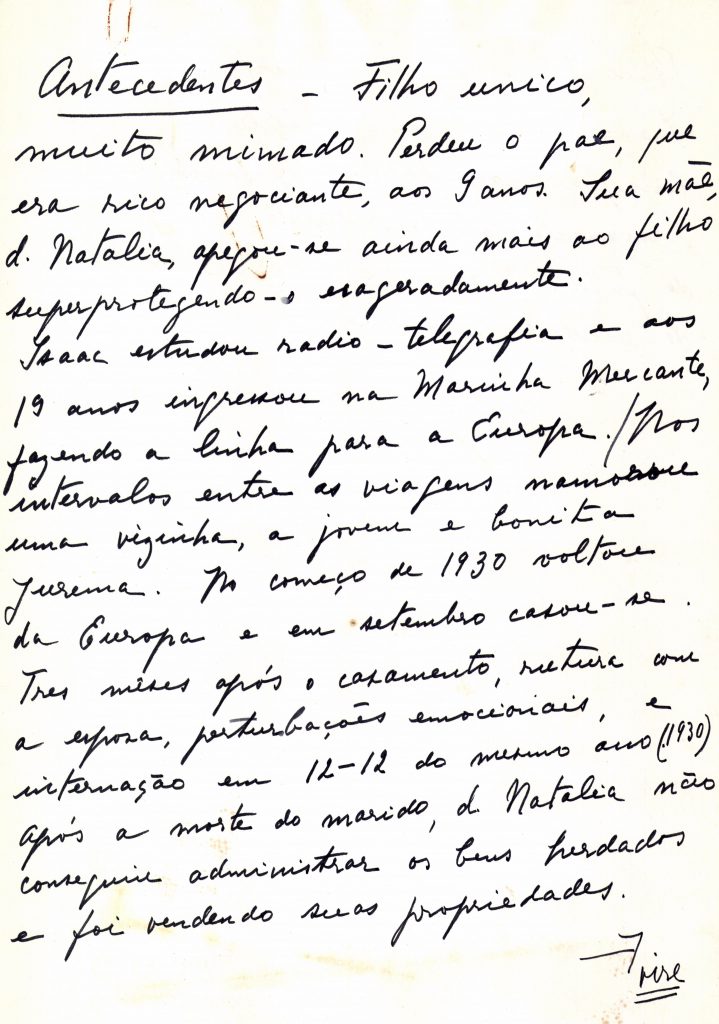 Antecedentes - Filho unico,
muito mimado. Perdeu o pae, que
era rico negociante, aos 9 anos. Sua mãe,
d. Natalia, apegou-se ainda mais ao filho
superprotegendo-o exageradamente.
Isaac estudou radio-telegrafia e aos
19 anos ingressou na Marinha Mercante,
fazendo a linha para a Europa./Nos
intervalos entre as viagens namorou
uma vizinha, a jovem e bonita
Jurema. No começo de 1930 voltou
da Europa e em setembro casou-se.
Tres mêses após o casamento, rutura com
a esposa, perturbações emocionais, e
internação em 12-12 do mesmo ano (1930)
Após a morte do marido, d. Natalia não
conseguiu administrar os bens herdados
e foi vendendo suas propriedades.
vire